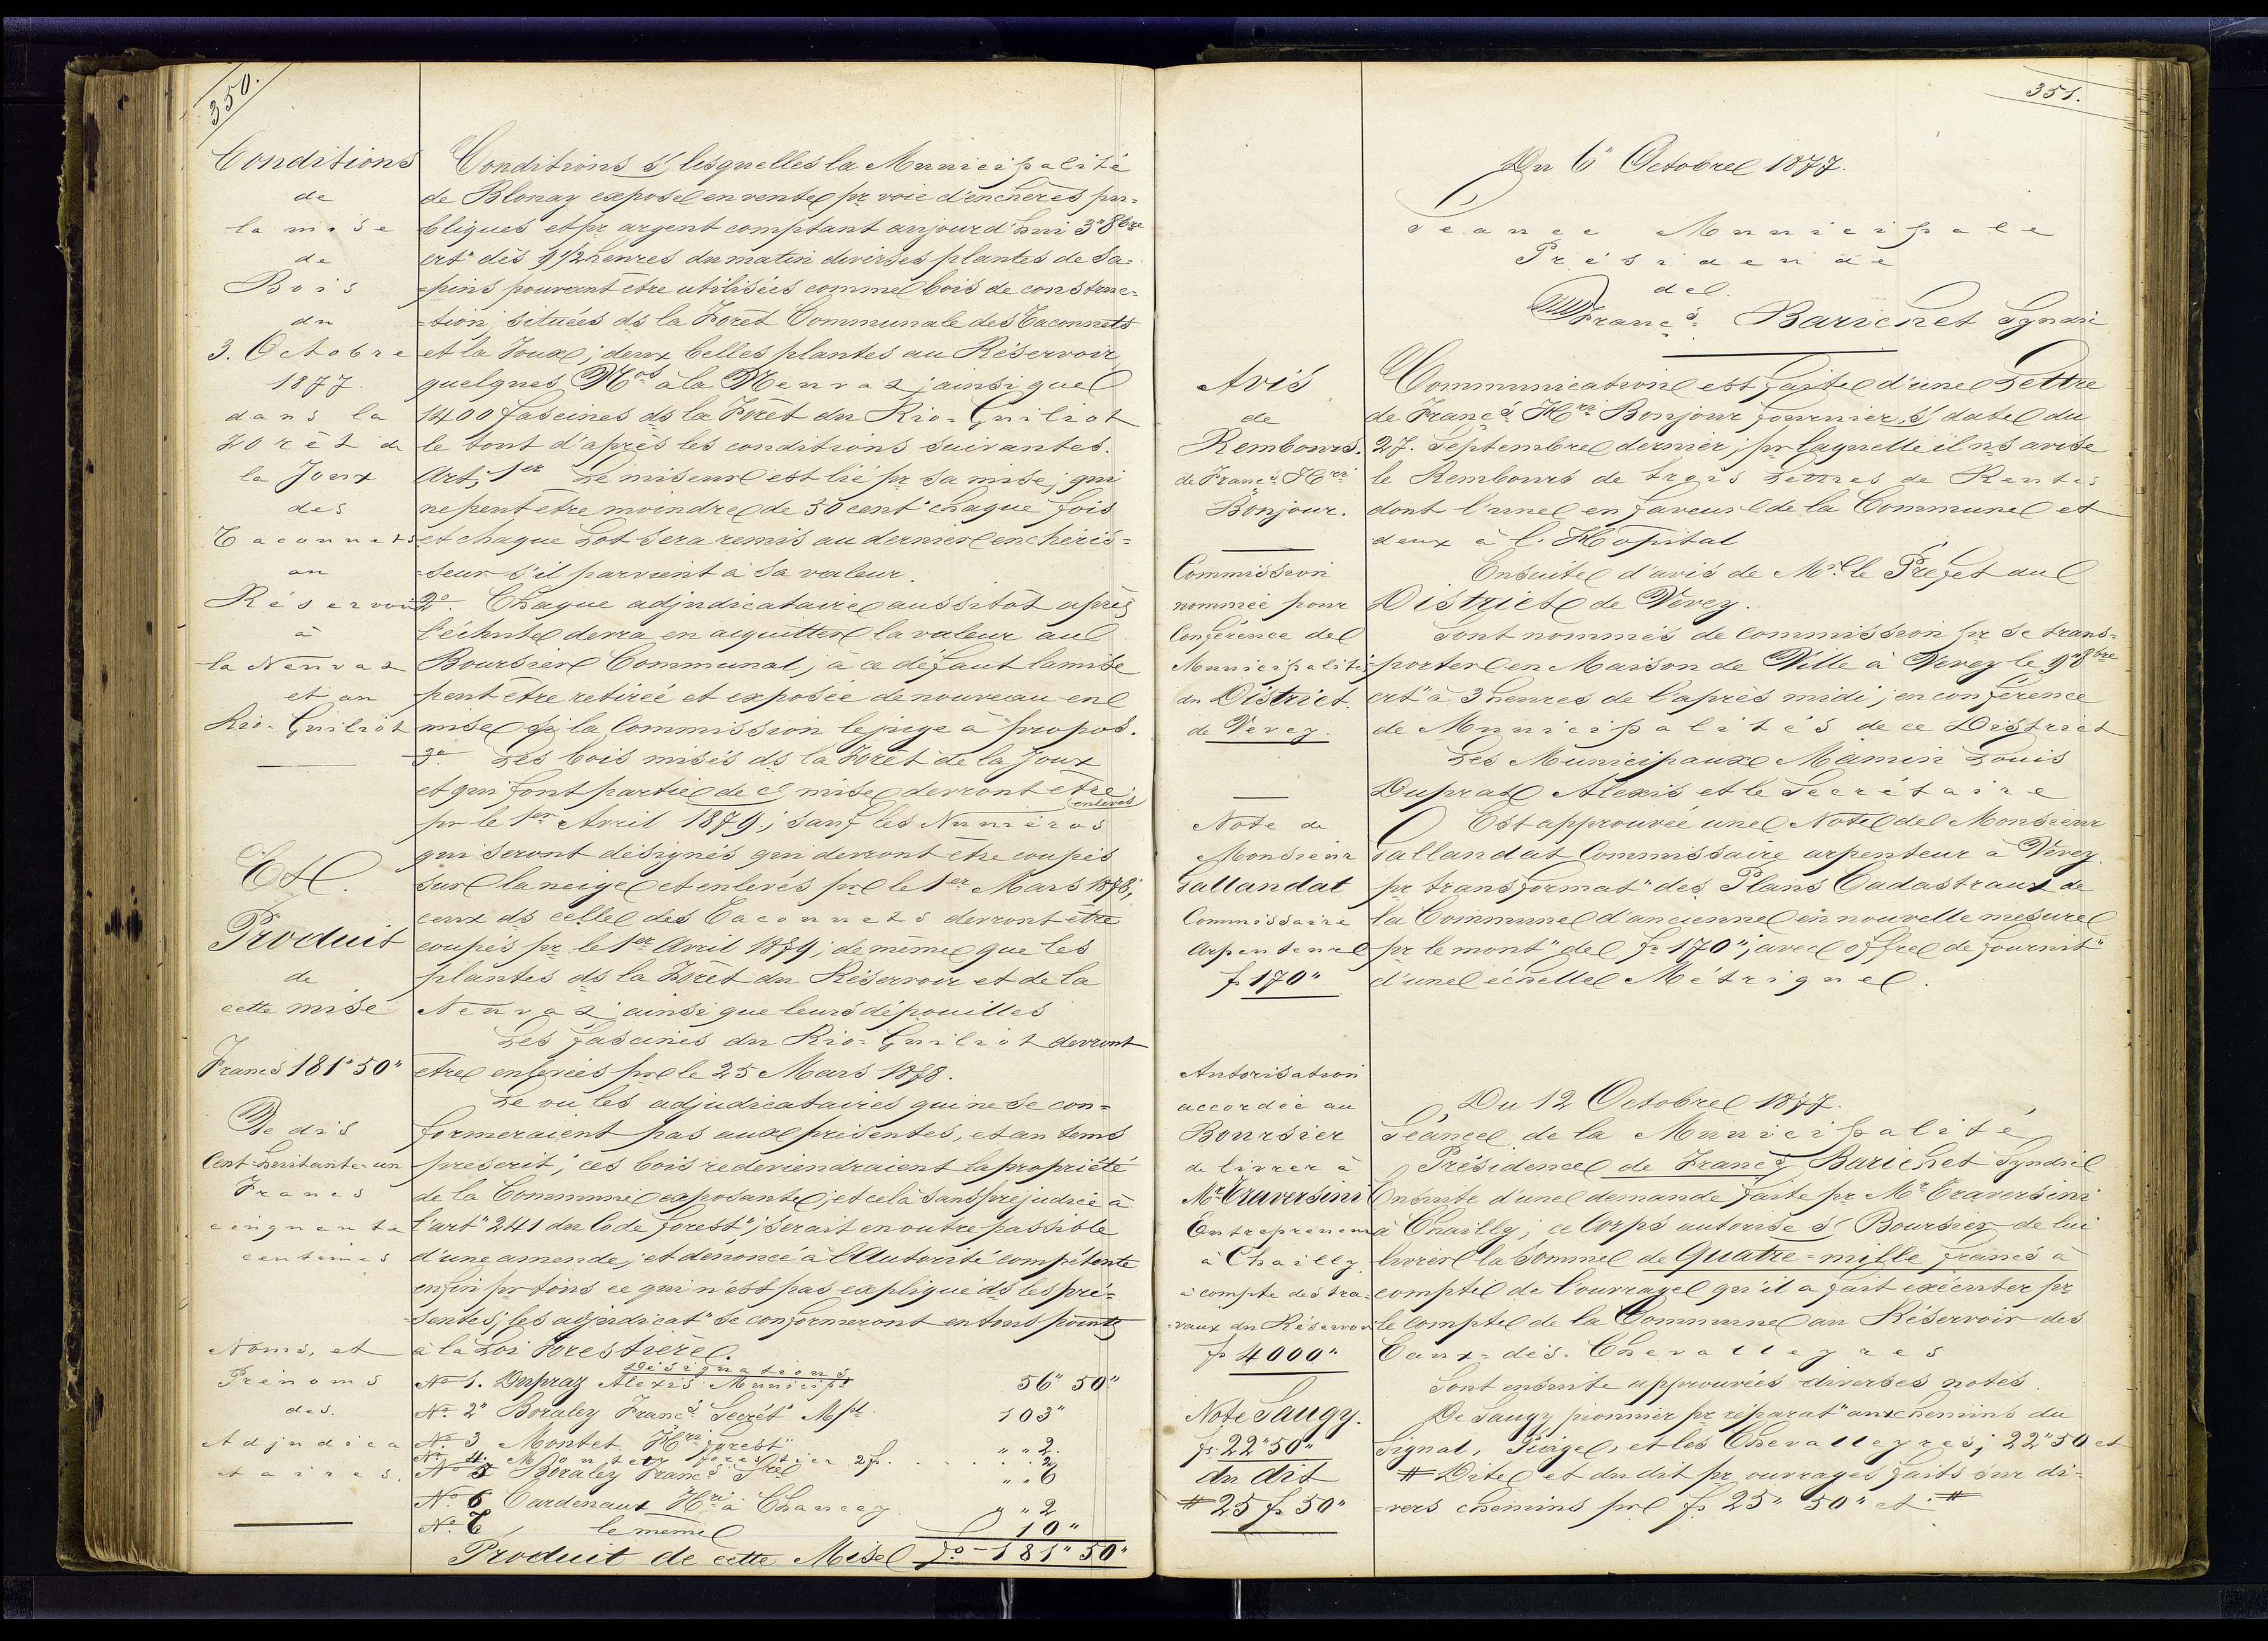 350.
Conditions
de
la mise
de
Bois
du
3. Octobre
1877.
dans la
Forêt de
la Joux
des
Taconnets
au
Réservoir
à
la Nenvaz
et au
Rio-Guiliot
Et
Produit
de
cette mise
Francs 181" 50"
De dis
Cent-huitante-un
Francs
cinquante
centimes
Noms, et
Prénoms
des
Adjudica
taires.
Conditions s/ lesquelles la Municipalité
de Blonay expose en vente pr voie d'enchères pu=
bliques et pr argent comptant aujourd'hui 3" 8bre
crt" dès 9 1/2 heures du matin diverses plantes de Sa=
=pins pouvant être utilisées comme bois de construc=
=tion, situées ds la Forêt Communale des Taconnets
et la Joux; deux belles plantes au Réservoir
quelques Mos à la Nenvaz; ainsi que
1400 fascines ds la Forêt du Rio-Guiliot
le tout d'après les conditions suivantes.
Art. 1er Le miseur est lié pr sa mise; qui
ne peut être moindre de 50 cent" chaque fois
et chaque Lot sera remis au dernier enchéris=
=seur s'il parvient à sa valeur.
2o. Chaque adjudicataire aussitôt après
l'échute devra en acquitter la valeur au
Boursier Communal; à ce défaut la mise
peut être retirée et exposée de nouveau en
mise si la Commission le juge à propos.
3o. Les bois misés ds la Forêt de la Joux
et qui font partie de ce mise devront être
(enlevés
pr le 1er Avril 1879; sauf les Numéros
qui seront désignés qui devront être coupés
sur la neige et enlevés pr le 1er Mars 1878;
ceux ds celle des Taconnets devront être
coupés pr le 1er Avril 1879; de même que les
plantes ds la Forêt du Réservoir et de la
Nenvaz ainsi que leurs dépouilles
Les fascines du Rio-Guiliot devront
être enlevées pr le 25 Mars 1878.
Le ou les adjudicataires qui ne se con=
formeraient pas aux présentes, et au tems
prescrit; ces bois redeviendraient la propriété
de la Commune exposante; et celà sans préjudice à
l'art" 241 du Code forest"; serait en outre passible
d'une amende; et dénoncé à l'Autorité compétente
enfin pr tous ce qui n'est pas expliqué ds les pré=
=sentes; les adjudicat" se conformeront en tous points
à la Loi Forestière.
Désignations
No 1. Dupraz Alexis Municipl 56" 50"
No. 2" Boraley Francs Secrét" Mpl 103"
No 3 Montet Hri forest" " " 2.
No. 4. Montet forestier 2 f. . . . . . 2
No 5 Boraley Francs " " 6
No. 6 Cardinaux Hri à Chancey " " 2
No. 7 le même 10"
Produit de cette Mise fs 181" 50"
351.
Avis
de
Rembours.
de Francs Hri
Bonjour.
Commission
nommée pour
Conférence de
Municipalités
du District
de Vevey.
Note de
Monsieur
Gallandat
Commissaire
Arpenteur
fs 170"
Autorisation
accordée au
Boursier
de livrer à
Mr Traversini
Entrepreneur
à Chailly
à compte des tra=
=vaux du Réservoir
fs 4000"
Note Saugy.
fs 22" 50"
du dit
# 25 fs 50"
Du 6" Octobre 1877.
Séance Municipale
Présidence
de
Francs Barichet Syndic
Communication est faite d'une Lettre
de Francs Hri Bonjour fournier, s/ date du
27. Septembre dernier; pr laquelle il ns avise
le Rembours de trois Lettres de Rentes
dont l'une en faveur de la Commune et
deux à l'Hôpital
Ensuite d'avis de Mr le Préfet du
District de Vevey.
Sont nommés de commission pr se trans=
porter en Maison de Ville à Vevey le 9" 8bre
crt" à 3 heures de l'après midi; en conférence
de Municipalités de ce District
Les Municipaux Mamin Louis
Dupraz Alexis et le Secrétaire
Est approuvée une Note de Monsieur
Gallandat Commissaire arpenteur à Vevey
pr transformat" des Plans Cadastraux de
la Commune d'ancienne en nouvelle mesure
pr le mont" de fs 170"; avec offre de fournit"
d'une échelle Métrique.
Du 12 Octobre 1877.
Séance de la Municipalité
Présidence de Francs Barichet Syndic
Ensuite d'une demande faite pr Mr Traversini
à Chailly; ce Corps autorise s/ Boursier de lui
livrer la somme de Quatre=mille francs à
compte de l'ouvrage qu'il a fait exécuter pr
le compte de la Commune au Réservoir des
Eaux-dès-Chevalleyres
Sont ensuite approuvées diverses notes
De Saugy pionnier pr réparat" aux chemins du
Signal, et les Chevalleyres; 22" 50 et
# Dite et du dit pr ouvrages faits sur di=
=vers chemins pr fs 25" 50" et #